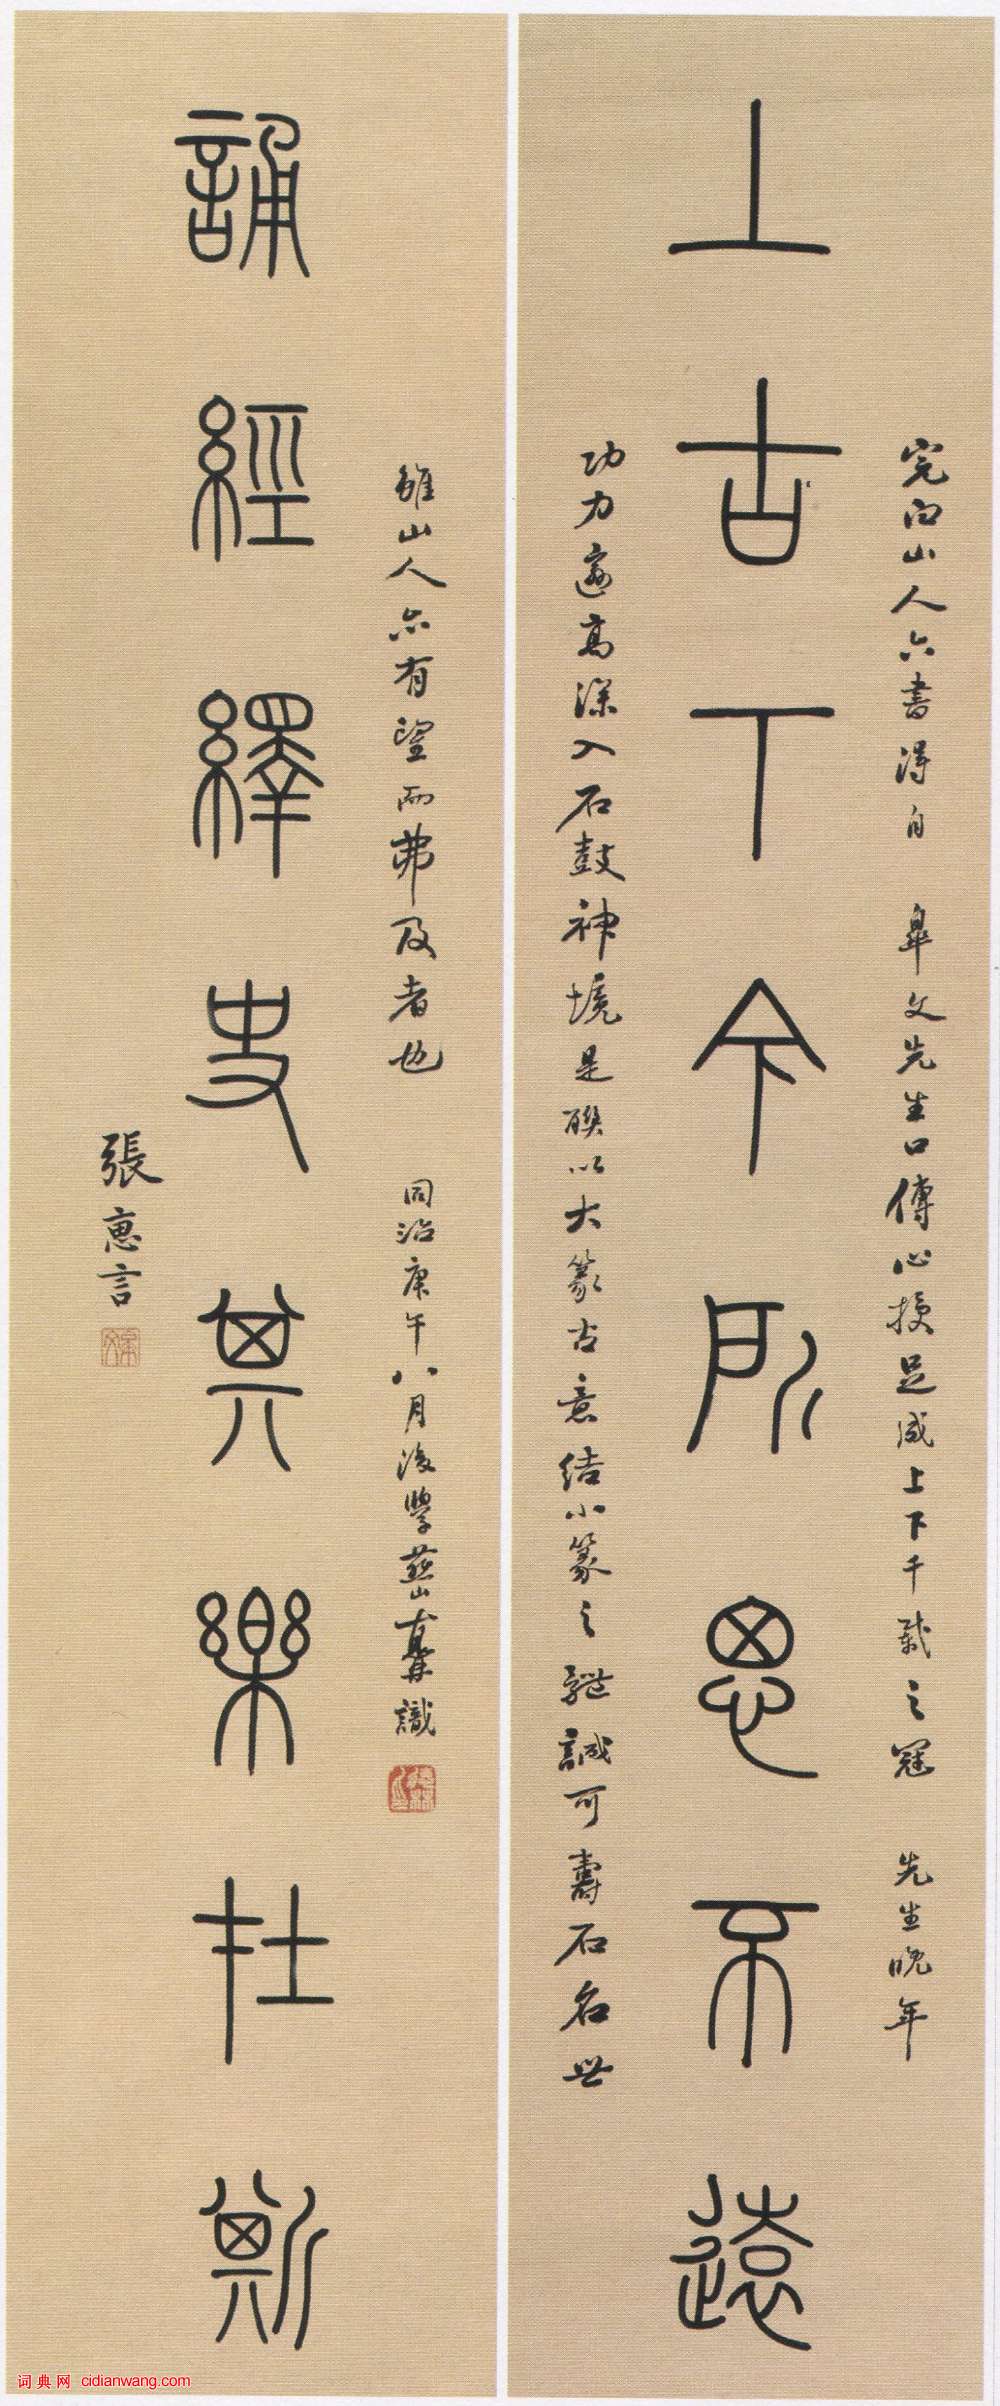 完白山人六書得自
皋文先生口傳心授足成上下千載之冠
先生晚年
上古下今所思不遠
功力邃高深入石鼓神境是聯以大篆古意結小篆之體誠可壽石名世
雖山人亦有望而弗及者也
同治庚午八月後學燕山識
誦經繹史其樂在斯
張惠言
词典网 cidianwang.com